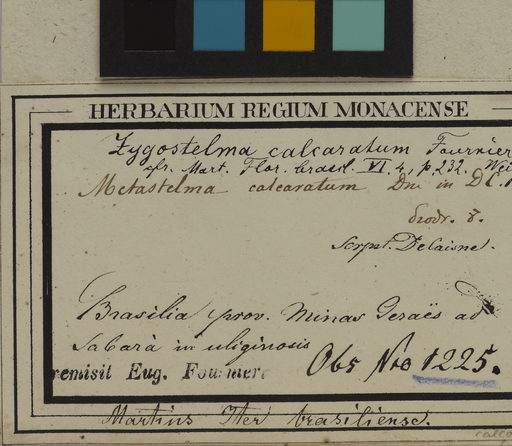 HERBARIUM REGIUM MONACENSE
Zygostelma calcaratum Fournier
cfr. Mart. Flor. brasil. VI. 4, p. 232.
Metastelma calcaratum Dne in DC.
Prodr. 8.
scrpst. Decaisne.
Brasilia prov. Minas Geraës ad
Sabarà in uliginosis
remisit Eug. Fournier
Obs Nro 1225.
Martius Iter brasiliense.